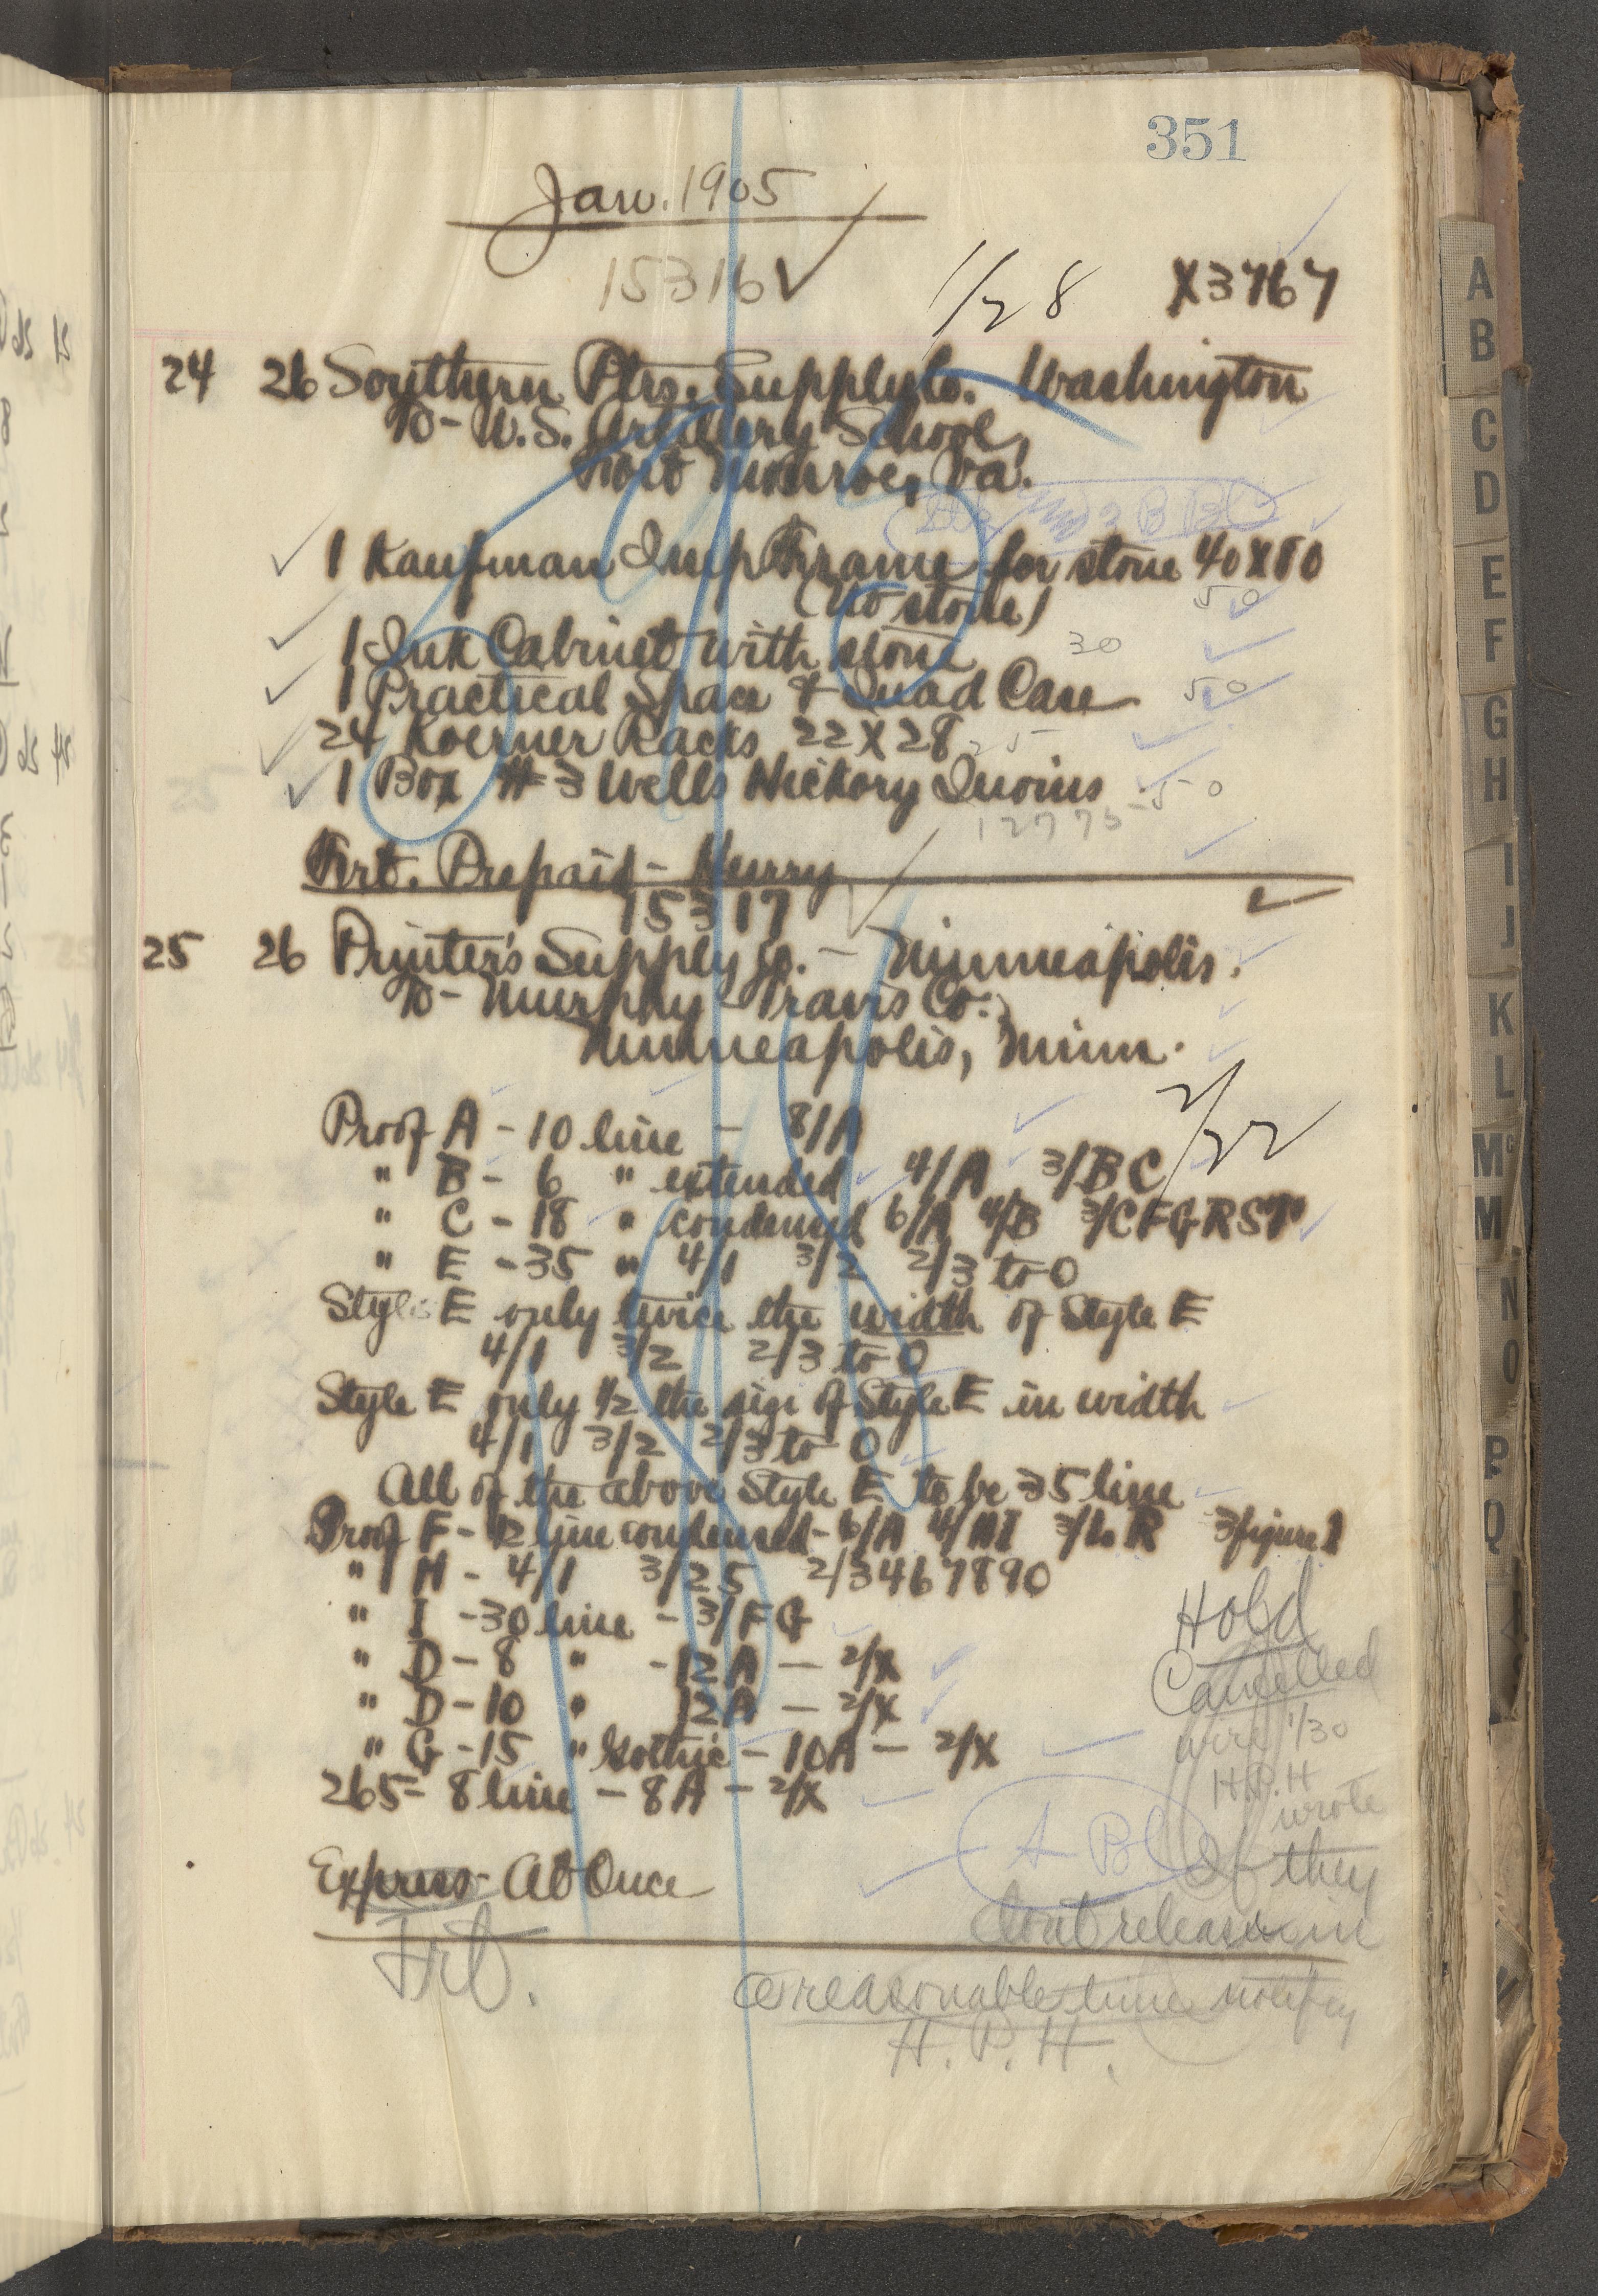 351
Jan. 1905
15316
1/28 X3767
24 26 Southern Ptrs. Supply Co. Washington
To - U.S. Artillery School,
Fort Monroe, Va.
1 Kaufman Imp Frame for stone 40X80
(No stone) 50
1 Ink Cabinet with stone 30
1 Practical Space & Quad Case 50
24 Koerner Racks 22X28 25
1 Box #3 Wells Hickory Quoins 50
12775
Frt. Prepaid - Hurry
15317
25 26 Printer's Supply Co. - Minneapolis.
To - Murphy Travis Co.,
Minneapolis, Minn.
2/22
Proof A - 10 line - 8/A
" B - 6 " extended 4/A 3/BC
" C - 18 " condensed 6/A 4/B 3/CFGRST
" E - 35 " 4/1 3/2 2/3 to 0
Style E only twice the width of Style E
4/1 3/2 2/3 to 0
Style E only 1/2 the size of Style E in width
4/1 3/2 2/3 to 0
All of the above Style E to be 35 line
Proof F - 12 line condensed - 6/A 4/ 3/ R 3/figure 1
" H - 4/1 3/25 2/3467890
" I - 30 line - 3/FG
" D - 8 " - 12A - 2/X
" D - 10 " 12A - 2/X
" G - 15 " Gothic - 10A - 2/X
265 - 8 line - 8A - 2/X
Hold
Cancelled
wire 1/30
H.P.H
wrote
Express - At Once
A BC
If they
dont release in
Frt.
a reasonable time notify
H. P. H.
A
B
C
D
E
F
G
H
I
J
K
L
Mc
M
N
O
P
Q